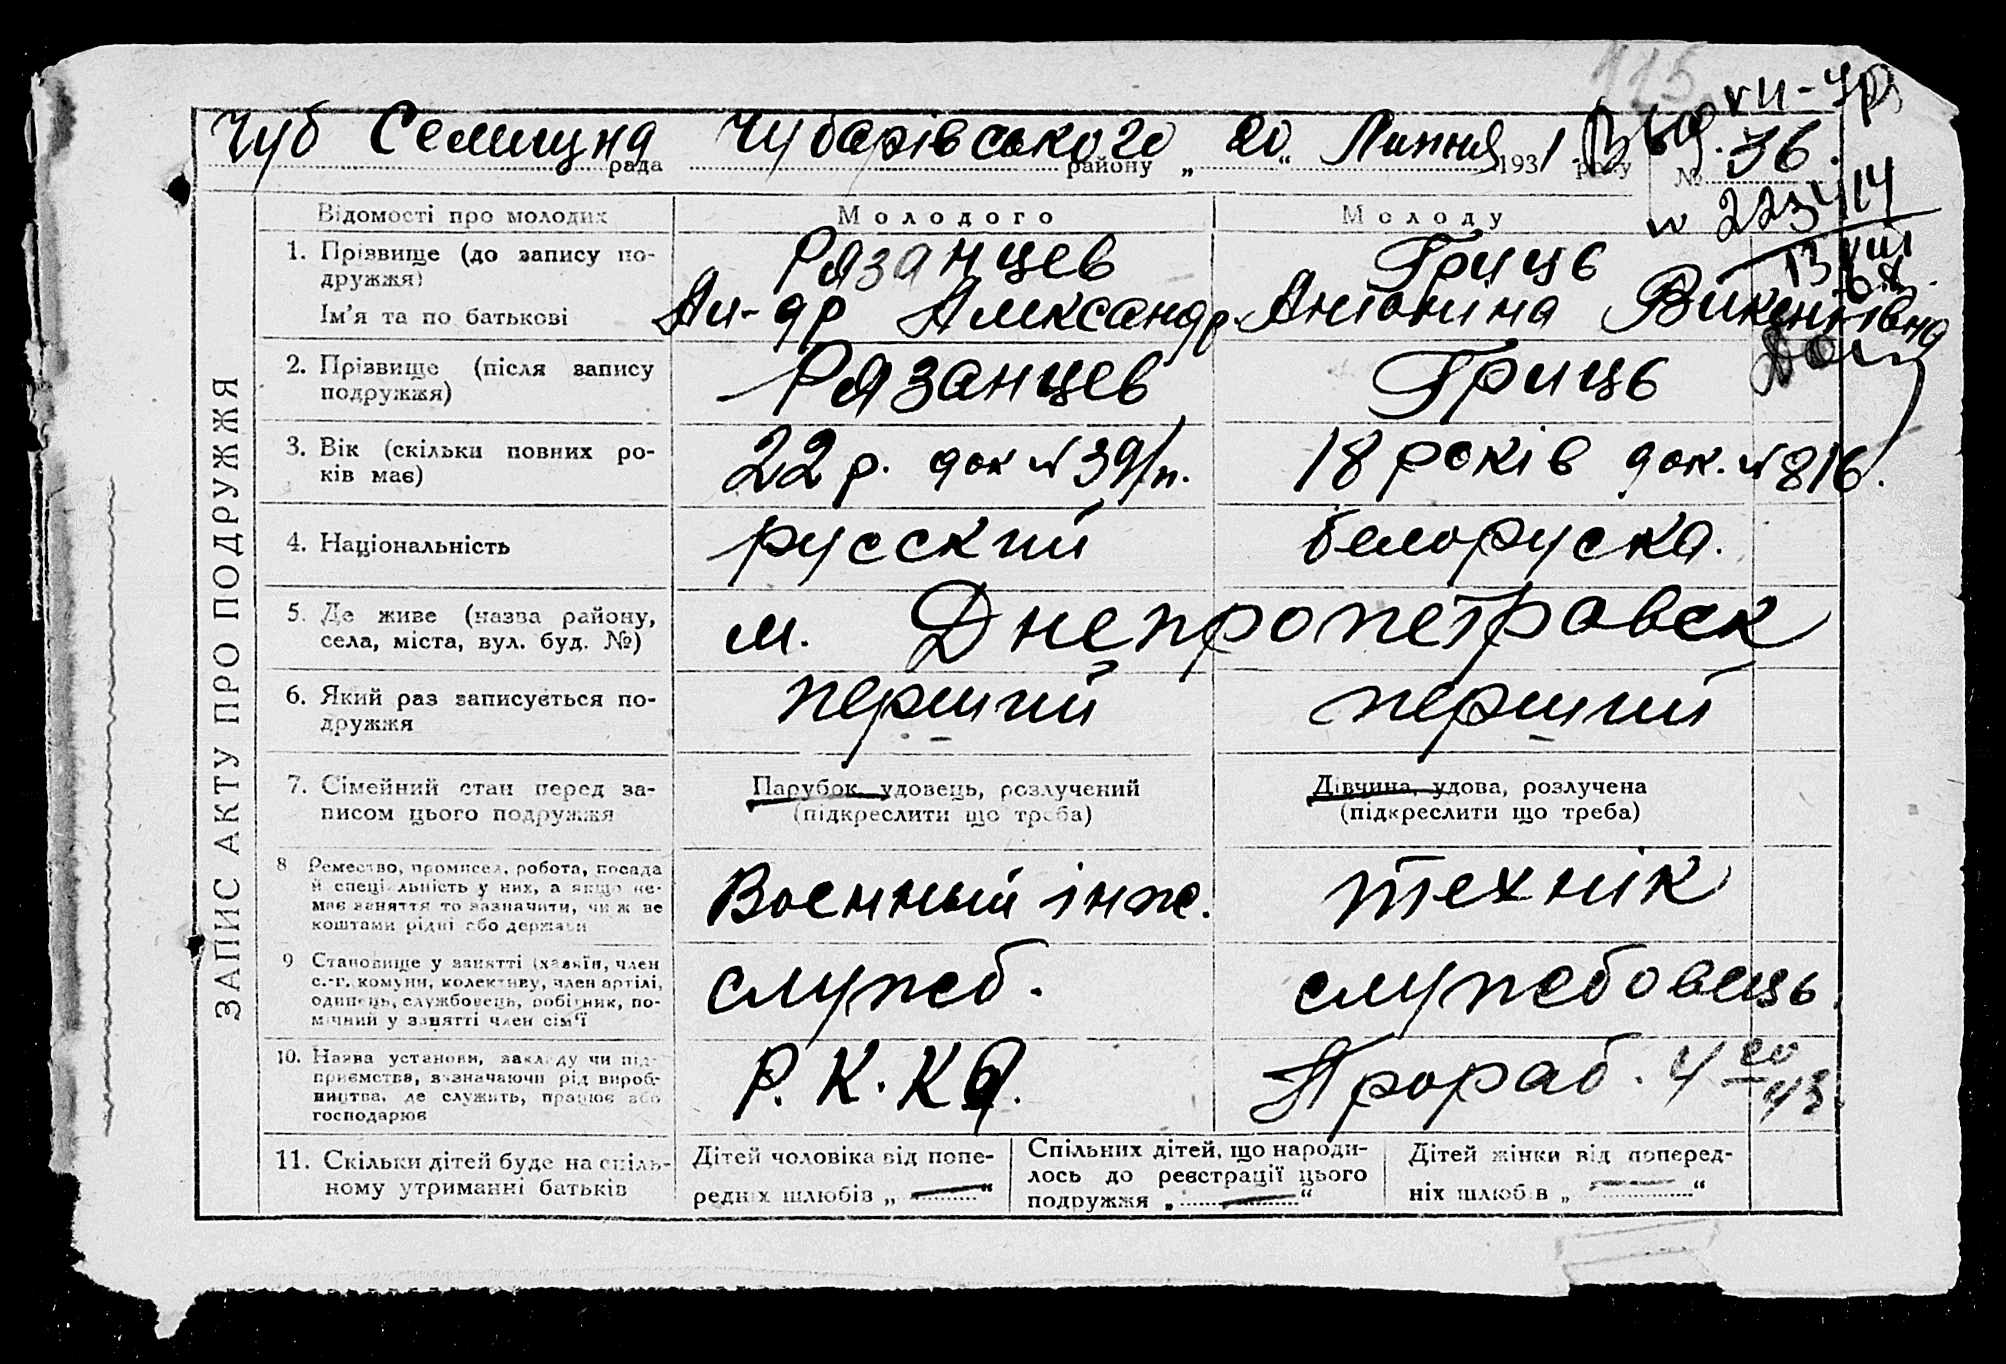 115
XII-
Чуб Селищна рада Чубарівського району „ 20 “ Липня 1931 року № 36.
№ 223414
13 VIII
ЗАПИС АКТУ ПРО ПОДРУЖЖЯ
Відомості про молодих Молодого Молоду
1. Прізвище (до запису по-
дружжя) Рязанцев Гриць
Ім’я та по батькові Ал-др Александр. Антоніна Викентівна
2. Прізвище (після запису
подружжя) Рязанцев Гриць
3. Вік (скільки повних ро-
ків має) 22 р. док № 39/п. 18 років док. № 816.
4. Національність русский белоруска.
5. Де живе (назва району,
села, міста, вул. буд. №) м. Днепропетровск
6. Який раз записується по-
дружжя перший перший
7. Сімейний стан перед за-
писом цього подружжя
Парубок, удовець, розлучений
(підкреслити що треба)
Дівчина, удова, розлучена
(підкреслити що треба)
8 Ремество, промисел, робота, посада
й спеціальність у них, а якщо не-
має заняття то зазначити, чиж не
коштами рідні або держави
Военный інж. технік
9 Становище у занятті (хазяїн, член
с.-г. комуни, колективу, член артілі,
одинець, службовець, робітник, по-
мічний у занятті член сім’ї
служб. службовець.
10. Назва установи, закладу чи під-
приємства, зазначаючи рід вироб-
ництва, де служить, працює або
господарює
Р. К. К. А. Прораб. 4
11. Скільки дітей буде на спіль-
ному утриманні батьків
Дітей чоловіка від попе-
редніх шлюбів „ — “
Спільних дітей, що народи-
лось до реєстрації цього
подружжя „ — “
Дітей жінки від поперед-
ніх шлюбів „ — “